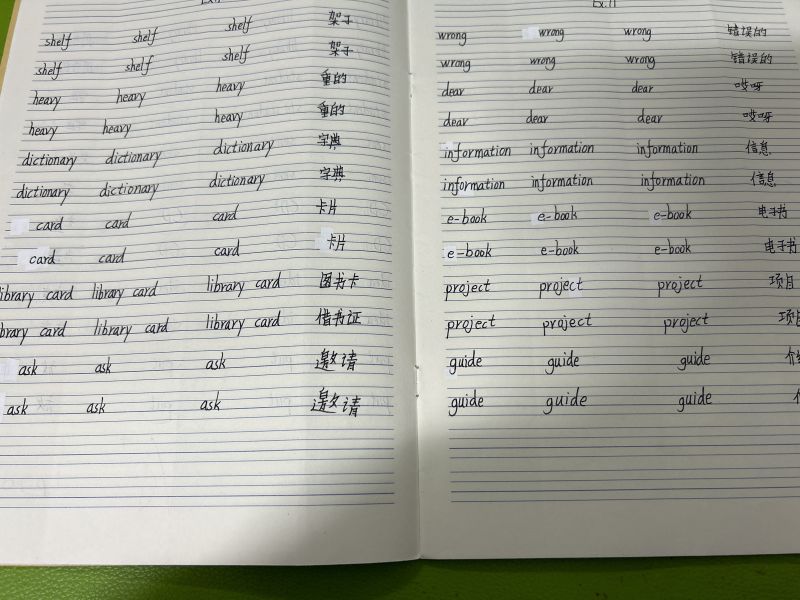 shelf shelf shelf 架子
shelf shelf shelf 架子
heavy heavy heavy 重的
heavy heavy heavy 重的
dictionary dictionary dictionary 字典
dictionary dictionary dictionary 字典
card card card 卡片
card card card 卡片
library card library card library card 图书卡
library card library card 借书证
ask ask ask 邀请
ask ask ask 邀请
Ex.11
wrong wrong wrong 错误的
wrong wrong wrong 错误的
dear dear dear 哎呀
dear dear dear 哎呀
information information information 信息
information information information 信息
e-book e-book e-book 电子书
e-book e-book e-book 电子书
project project project 项目
project project project 项目
guide guide guide
guide guide guide